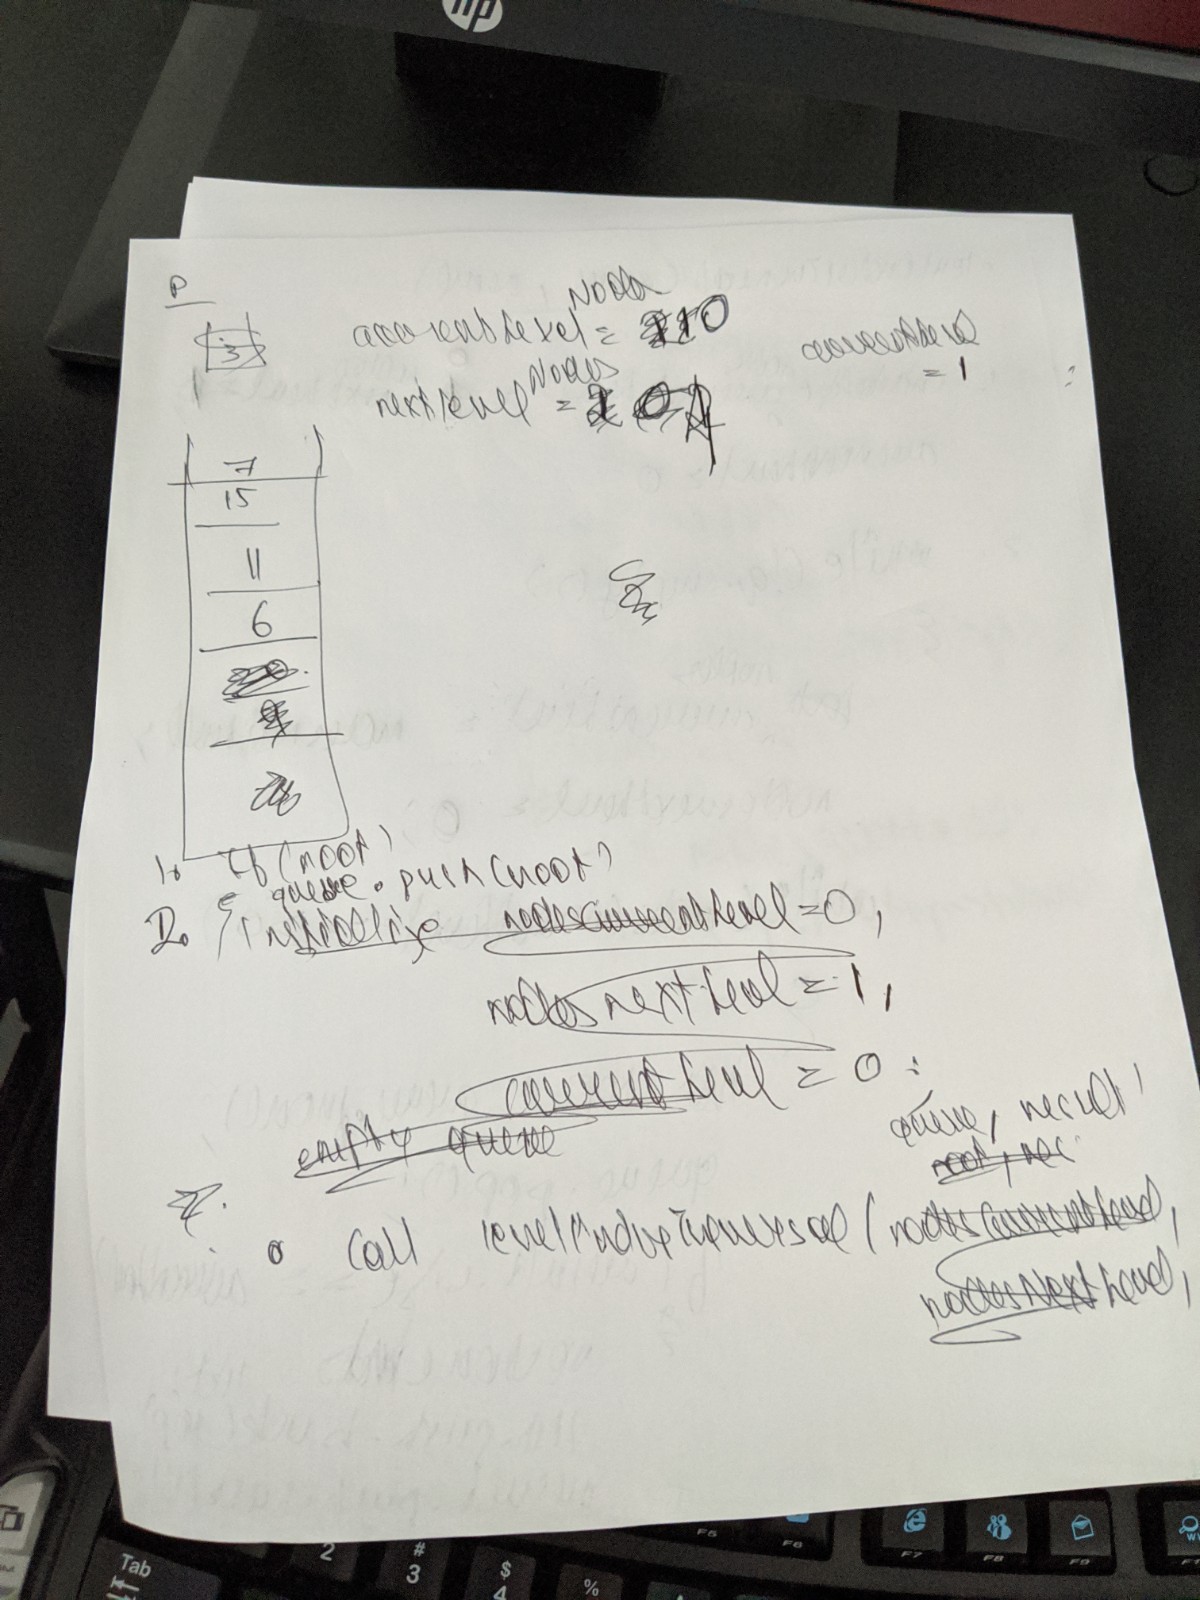 hp
P
3
Node
currentLevel = 0
Nodes
nextLevel = 1
currentLevel
= 1
7
15
11
6
1. If (root)
queue.push(root)
2. Initialize nodesCurrentLevel = 0,
nodesnextLevel = 1,
currentLevel = 0;
empty queue
queue, result
root, res
call levelOrderTraversal (nodesCurrentLevel,
nodesNextLevel,
Tab
2
#
3
$
4
%
F5
F6
F7
F8
F9